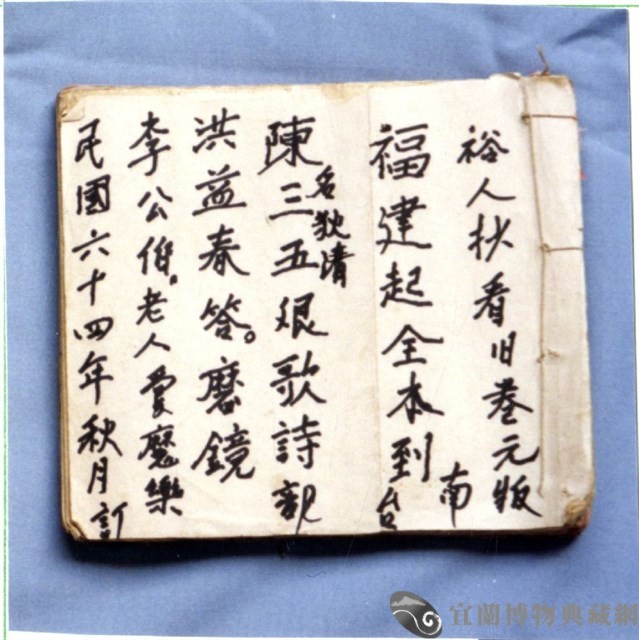 裕人抄看旧卷元版
南
福建起全本到台
陳三五娘歌詩訴
名狄清
洪益春答。磨鏡
李公伯。老人愛魔樂
民國六十四年秋月訂
宜蘭博物典藏網